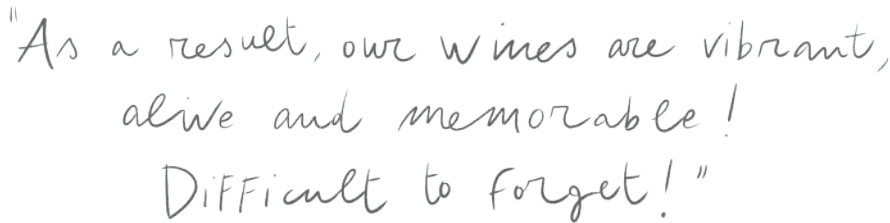 "As a result, our wines are vibrant,
alive and memorable!
Difficult to forget!"